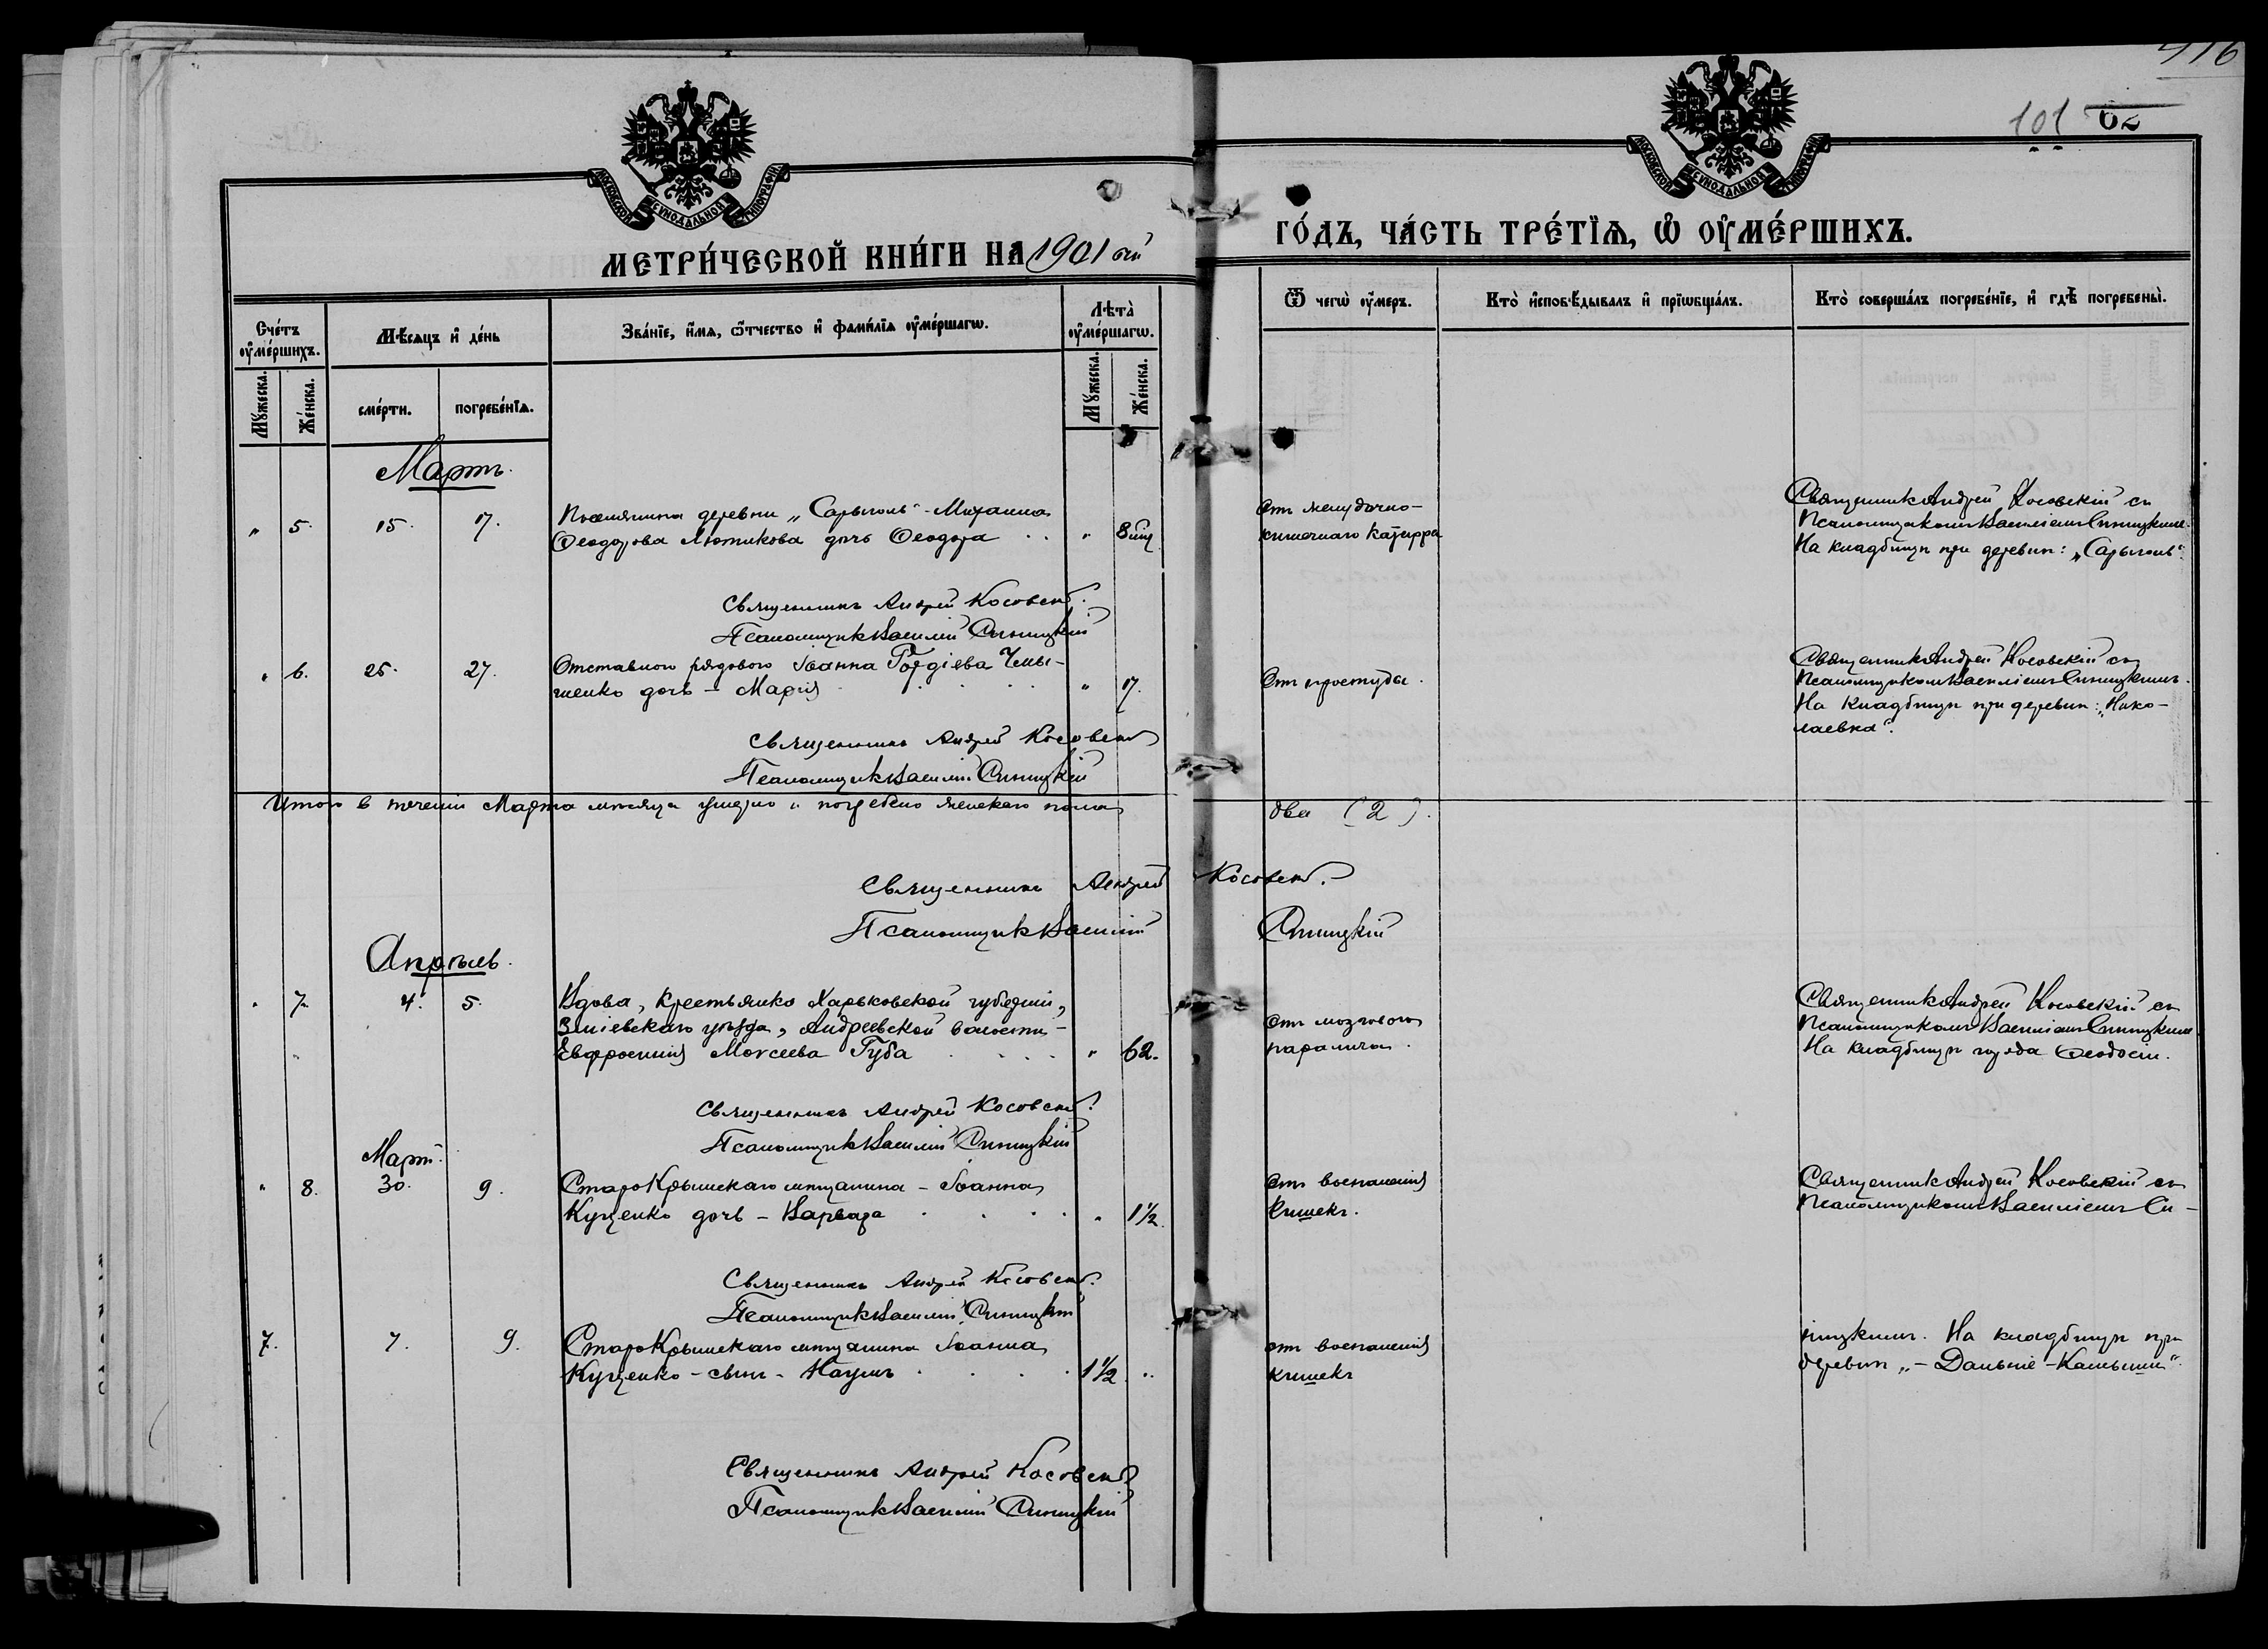 416
101 62
МОСКОВСКОЙ СѴНОДАЛЬНОЙ ТИПОГРАФІИ
МОСКОВСКОЙ СѴНОДАЛЬНОЙ ТИПОГРАФІИ
МЕТРИ́ЧЕСКОЙ КНИ́ГИ НА 1901 ый
ГО́ДЪ, ЧА́СТЬ ТРЕ́ТЇѦ, Ѡ҆ ОУ҆МЕ́РШИХЪ.
Сче́тъ оу҆ме́ршихъ.
Мѣ́сяцъ и҆ де́нь
Зва́нїе, и҆́мѧ, ѻ҆́тчество и҆ фами́лїѧ оу҆ме́ршагѡ.
Лѣта̀ оу҆ме́ршагѡ.
Ѿ чегѡ̀ оу҆́меръ.
Кто̀ и҆сповѣ́дывалъ и҆ прїѡбща́лъ.
Кто̀ соверша́лъ погребе́нїе, и҆ гдѣ̀ погребены̀.
Мꙋ́жеска.
Же́нска.
сме́рти.
погребе́нїѧ.
Мꙋ́жеска.
Же́нска.
Мартъ.
" 5. 15. 17. Поселянина деревни „Сарыголь" - Михаила
Ѳеодорова Лютикова дочь Ѳеодора . . " 8 мц
отъ желудочно-
кишечнаго катарра
Священникъ Андрей Косовскій съ
Псаломщикомъ Василіемъ Синицкимъ.
На кладбищѣ при деревнѣ: „Сарыголь".
Священникъ Андрей Косовскій.
Псаломщикъ Василій Синицкій
" 6. 25. 27. Отставного рядового Іоанна Гордіева
шенко дочь - Марія . . . . " 17.
Отъ простуды.
Священникъ Андрей Косовскій съ
Псаломщикомъ Василіемъ Синицкимъ.
На кладбищѣ при деревнѣ: „Нико-
лаевка".
Священникъ Андрей Косовскій
Псаломщикъ Василій Синицкій
Итого в теченіи Марта мѣсяца умерло и погребено женскаго пола два (2).
Священникъ Андрей Косовскій.
Псаломщикъ Василій Синицкій
Апрѣль.
" 7. 4. 5. Вдова, крестьянка Харьковской губерніи,
Зміевскаго уѣзда, Андреевской волости -
Евфросинія Моисеева Губа . . . . " 62.
отъ мозгового
паралича.
Священникъ Андрей Косовскій съ
Псаломщикомъ Василіемъ Синицкимъ
На кладбищѣ города Ѳеодосіи.
Священникъ Андрей Косовскій.
Псаломщикъ Василій Синицкій
Март.
" 8. 30. 9. Старокрымскаго мѣщанина - Іоанна
Куценко дочь - Варвара . . . . " 1½.
отъ воспаленія
кишекъ.
Священникъ Андрей Косовскій съ
Псаломщикомъ Василіемъ Си-
Священникъ Андрей Косовскій.
Псаломщикъ Василій Синицкій
7. 7. 9. Старокрымскаго мѣщанина Іоанна
Куценко - сынъ - Наумъ . . . . 1½ "
отъ воспаленія
кишекъ
ницкимъ. На кладбищѣ при
деревнѣ „-Дальніе-Камыши".
Священникъ Андрей Косовскій
Псаломщикъ Василій Синицкій